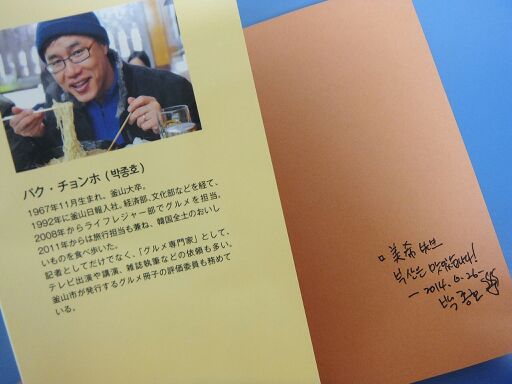 パク・チョンホ (박종호)
1967年11月生まれ。釜山大卒。
1992年に釜山日報入社。経済部、文化部などを経て、
2008年からライフレジャー部でグルメを担当。
2011年からは旅行担当も兼ね、韓国全土のおいし
いものを食べ歩いた。
記者としてだけでなく、「グルメ専門家」として、
テレビ出演や講演、雑誌執筆などの依頼も多い。
釜山市が発行するグルメ冊子の評価委員も務めて
いる。
美希
부산은 맛있습니다!
- 2014. 6. 26
박종호